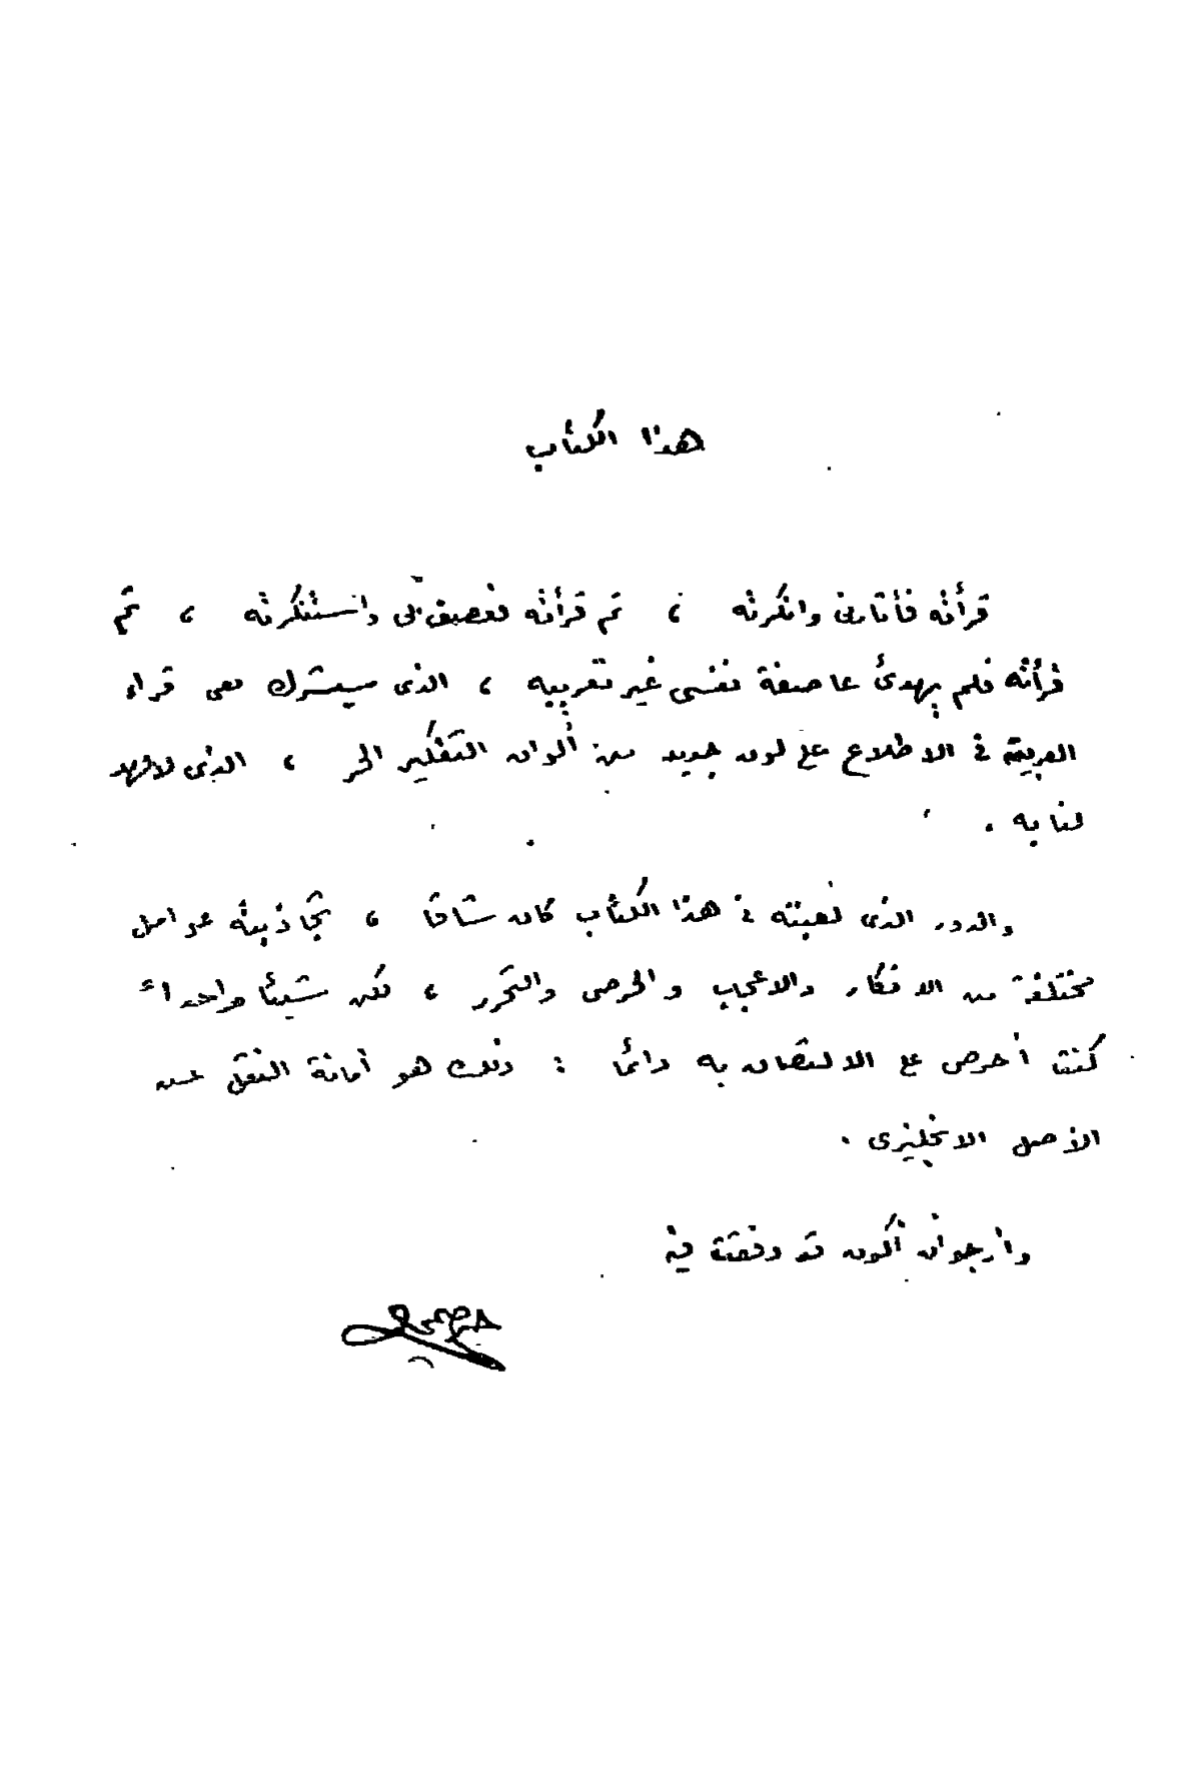 هذا الكتاب
قرأته فأثارنى وانكرته ، ثم قرأته فعصف بى واستنكرته ، ثم
قرأته فلم يهدئ عاصفة نفسى غير تعريبه ، الذى سيشرك معى قراء
العربية فى الاطلاع على لون جديد من ألوان التفكير الحر ، الذى لا عهد
لنا به .
والدور الذى لعبته فى هذا الكتاب كان شاقا ، تجاذبته عوامل
مختلفة من الافكار والاعجاب والحرص والتحرر ، لكن شيئا واحدا
كنت أحرص على الالتصاق به دائما : ذلك هو أمانة النقل عن
الأصل الانجليزى .
وأرجو أن أكون قد وفقت فيه